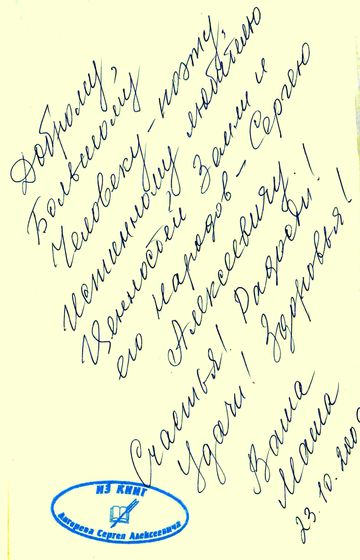 Доброму,
Большому
Человеку-поэту,
Истинному любителю
Ценностей Земли и
его народов - Сергею
Алексеевичу!
Счастья! Радости!
Удачи! Здоровья!
Ваша
Маша
23.10.200
ИЗ КНИГ
Ангарева Сергея Алексеевича